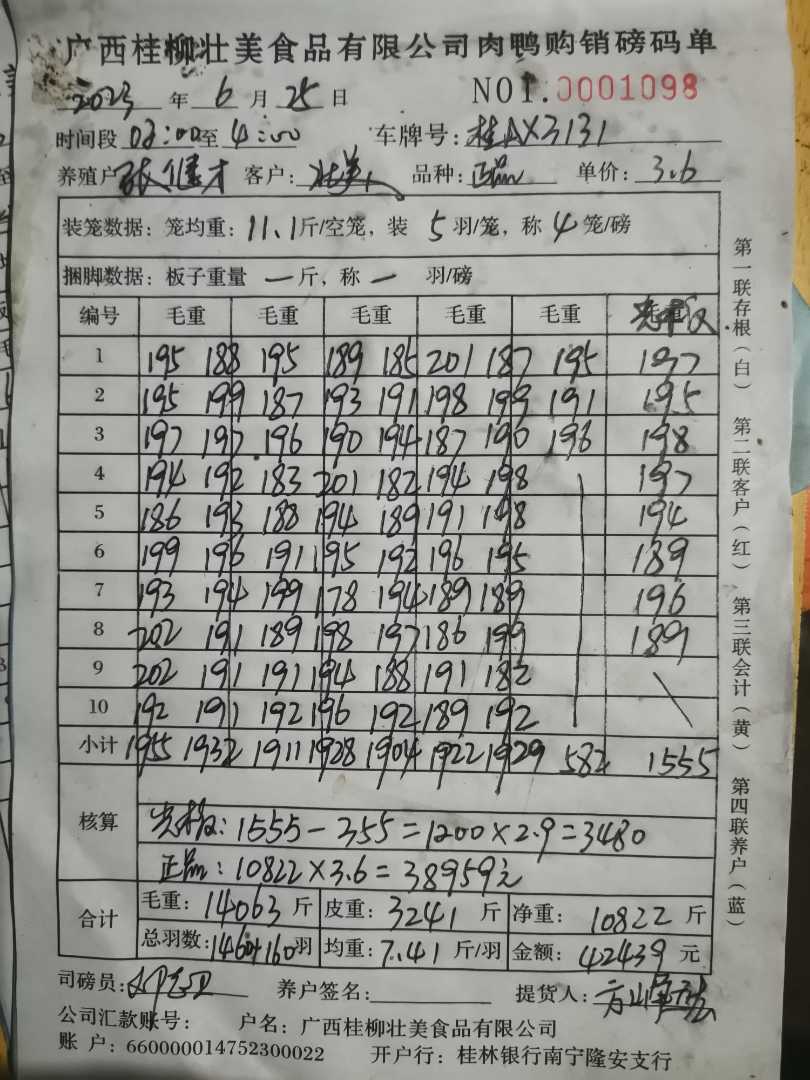 广西桂柳壮美食品有限公司肉鸭购销磅码单
2023年6月25日 NO1.0001098
时间段03:00至4:00 车牌号:桂AX3131
养殖户 客户:壮美 品种:正品 单价:3.6
装笼数据:笼均重:11.1斤/空笼,装5羽/笼,称4笼/磅
捆脚数据:板子重量一斤,称一羽/磅
编号 毛重 毛重 毛重 毛重 毛重
1 195 188 195 189 185 201 187 195 197
2 195 199 187 193 191 198 199 191 195
3 197 197 196 190 194 187 190 196 198
4 194 192 183 201 182 194 198 197
5 186 193 188 194 189 191 198 194
6 199 196 191 195 192 196 195 189
7 193 194 199 178 194 189 189 196
8 202 191 189 198 197 186 199 189
9 202 191 191 194 188 191 182
10 192 191 192 196 192 189 192
小计 1955 1932 1911 1928 1904 1922 1929 582 1555
核算
:1555-355=1200×2.9=3480
正品:10822×3.6=38959元
合计
毛重:14063斤 皮重:3241斤 净重:10822斤
总羽数:1460+160羽 均重:7.41斤/羽 金额:42439元
司磅员: 养户签名: 提货人:
公司汇款账号: 户名:广西桂柳壮美食品有限公司
账 户:660000014752300022 开户行:桂林银行南宁隆安支行
第一联存根(白) 第二联客户(红) 第三联会计(黄) 第四联养户(蓝)